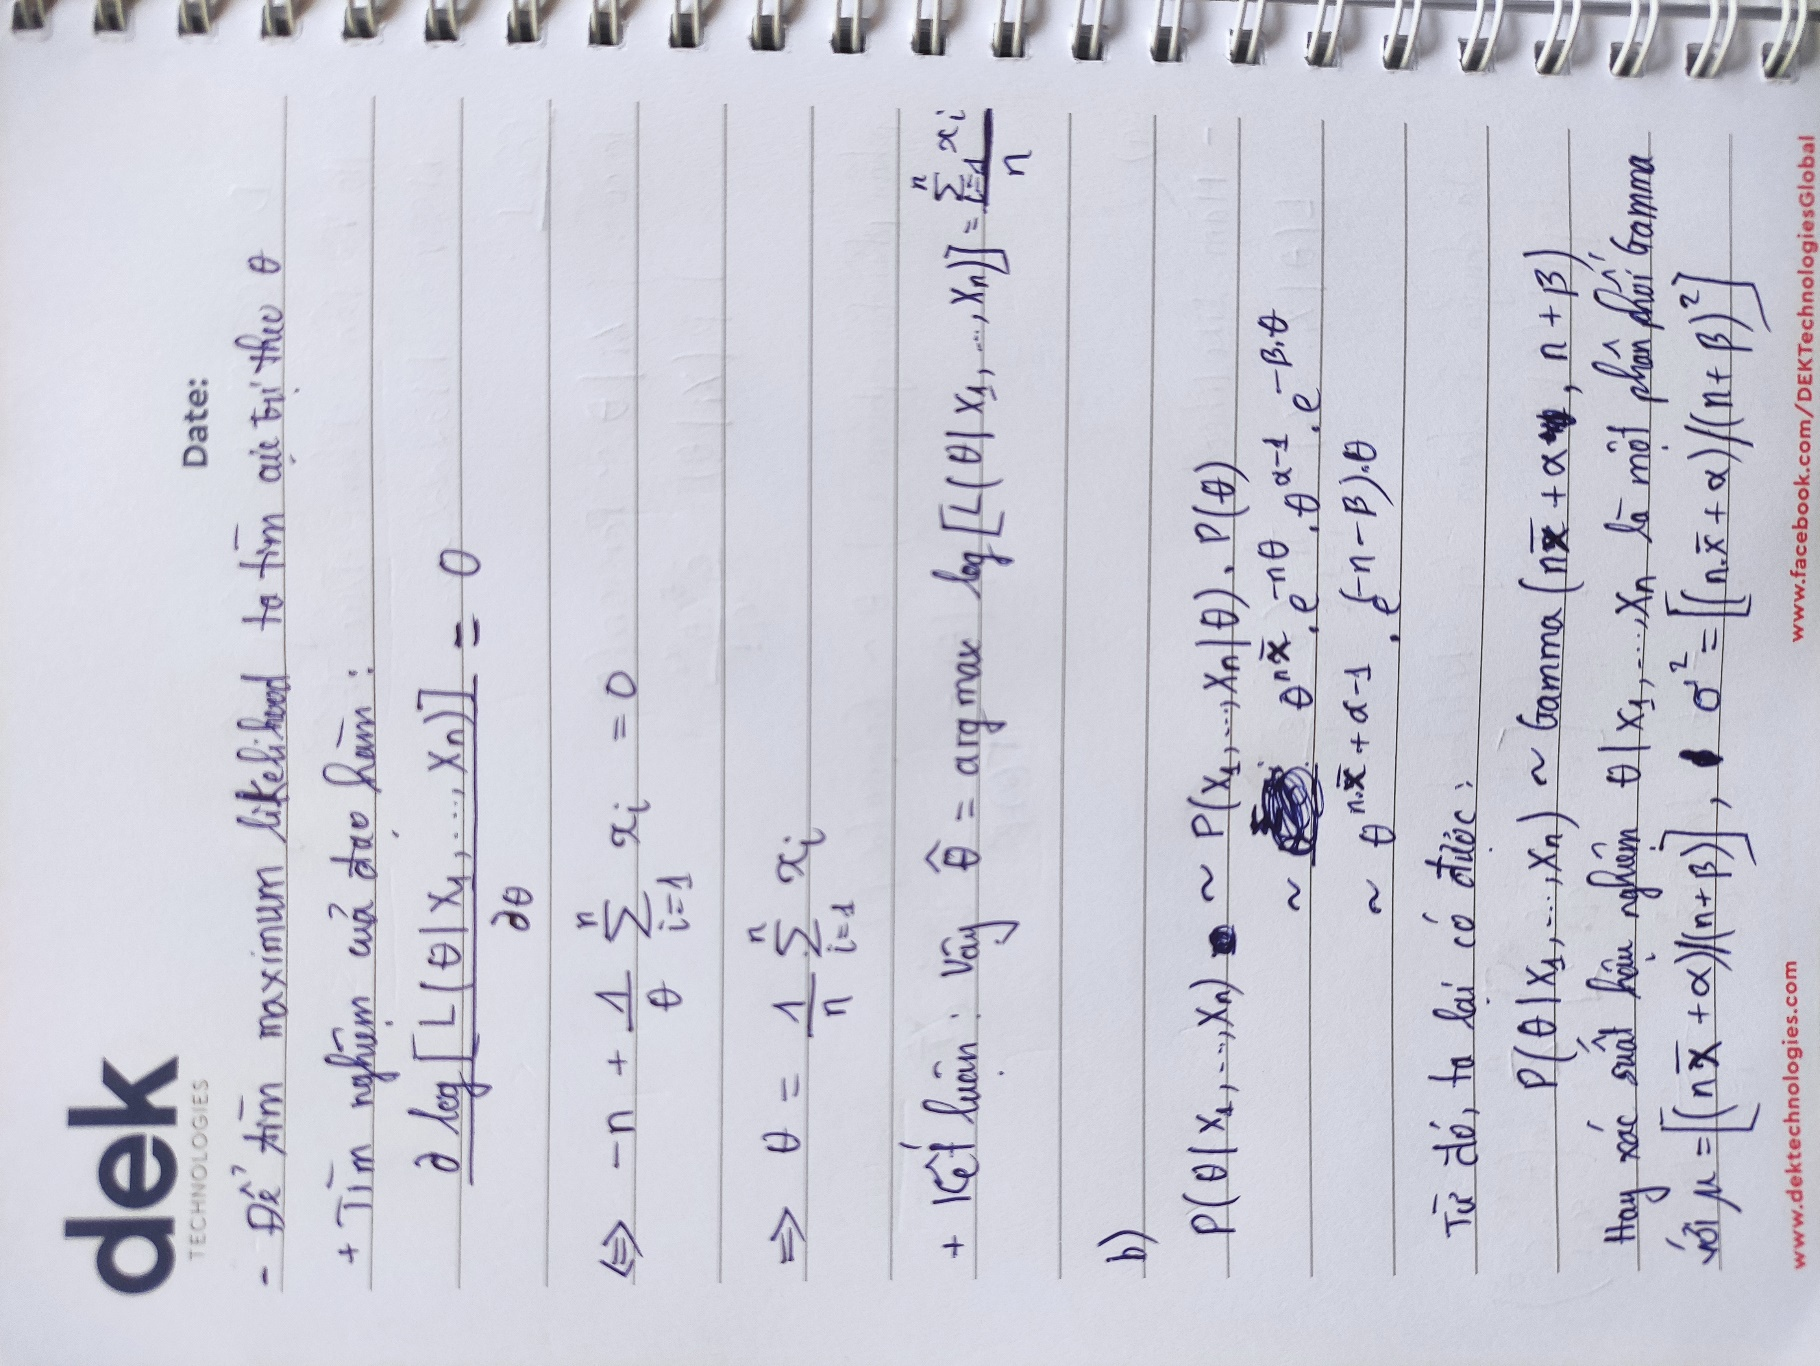 dek
TECHNOLOGIES
Date:
- Để tìm maximum likelihood ta tìm cực trị theo θ
+ Tìm nghiệm của đạo hàm :
∂ log [L(θ | X₁, ..., Xₙ)] / ∂θ = 0
⇔ -n + 1/θ ∑ᵢ₌₁ⁿ xᵢ = 0
⇒ θ = 1/n ∑ᵢ₌₁ⁿ xᵢ
+ Kết luận : Vậy θ̂ = arg max log [L(θ | X₁, ..., Xₙ)] = ∑ᵢ₌₁ⁿ xᵢ / n
b)
P(θ | X₁, ..., Xₙ) ~ P(X₁, ..., Xₙ | θ) . P(θ)
~ θ^(n x̄) . e^(-nθ) . θ^(α-1) . e^(-β.θ)
~ θ^(n.x̄ + α-1) . e^((-n-β).θ)
Từ đó, ta lại có được :
P(θ | X₁, ..., Xₙ) ~ Gamma (n x̄ + α , n + β)
Hay xác suất hậu nghiệm θ | X₁, ..., Xₙ là một phân phối Gamma
với μ = [(n x̄ + α)/(n+β)] , σ² = [(n.x̄ + α)/(n+β)²]
www.dektechnologies.com
www.facebook.com/DEKTechnologiesGlobal